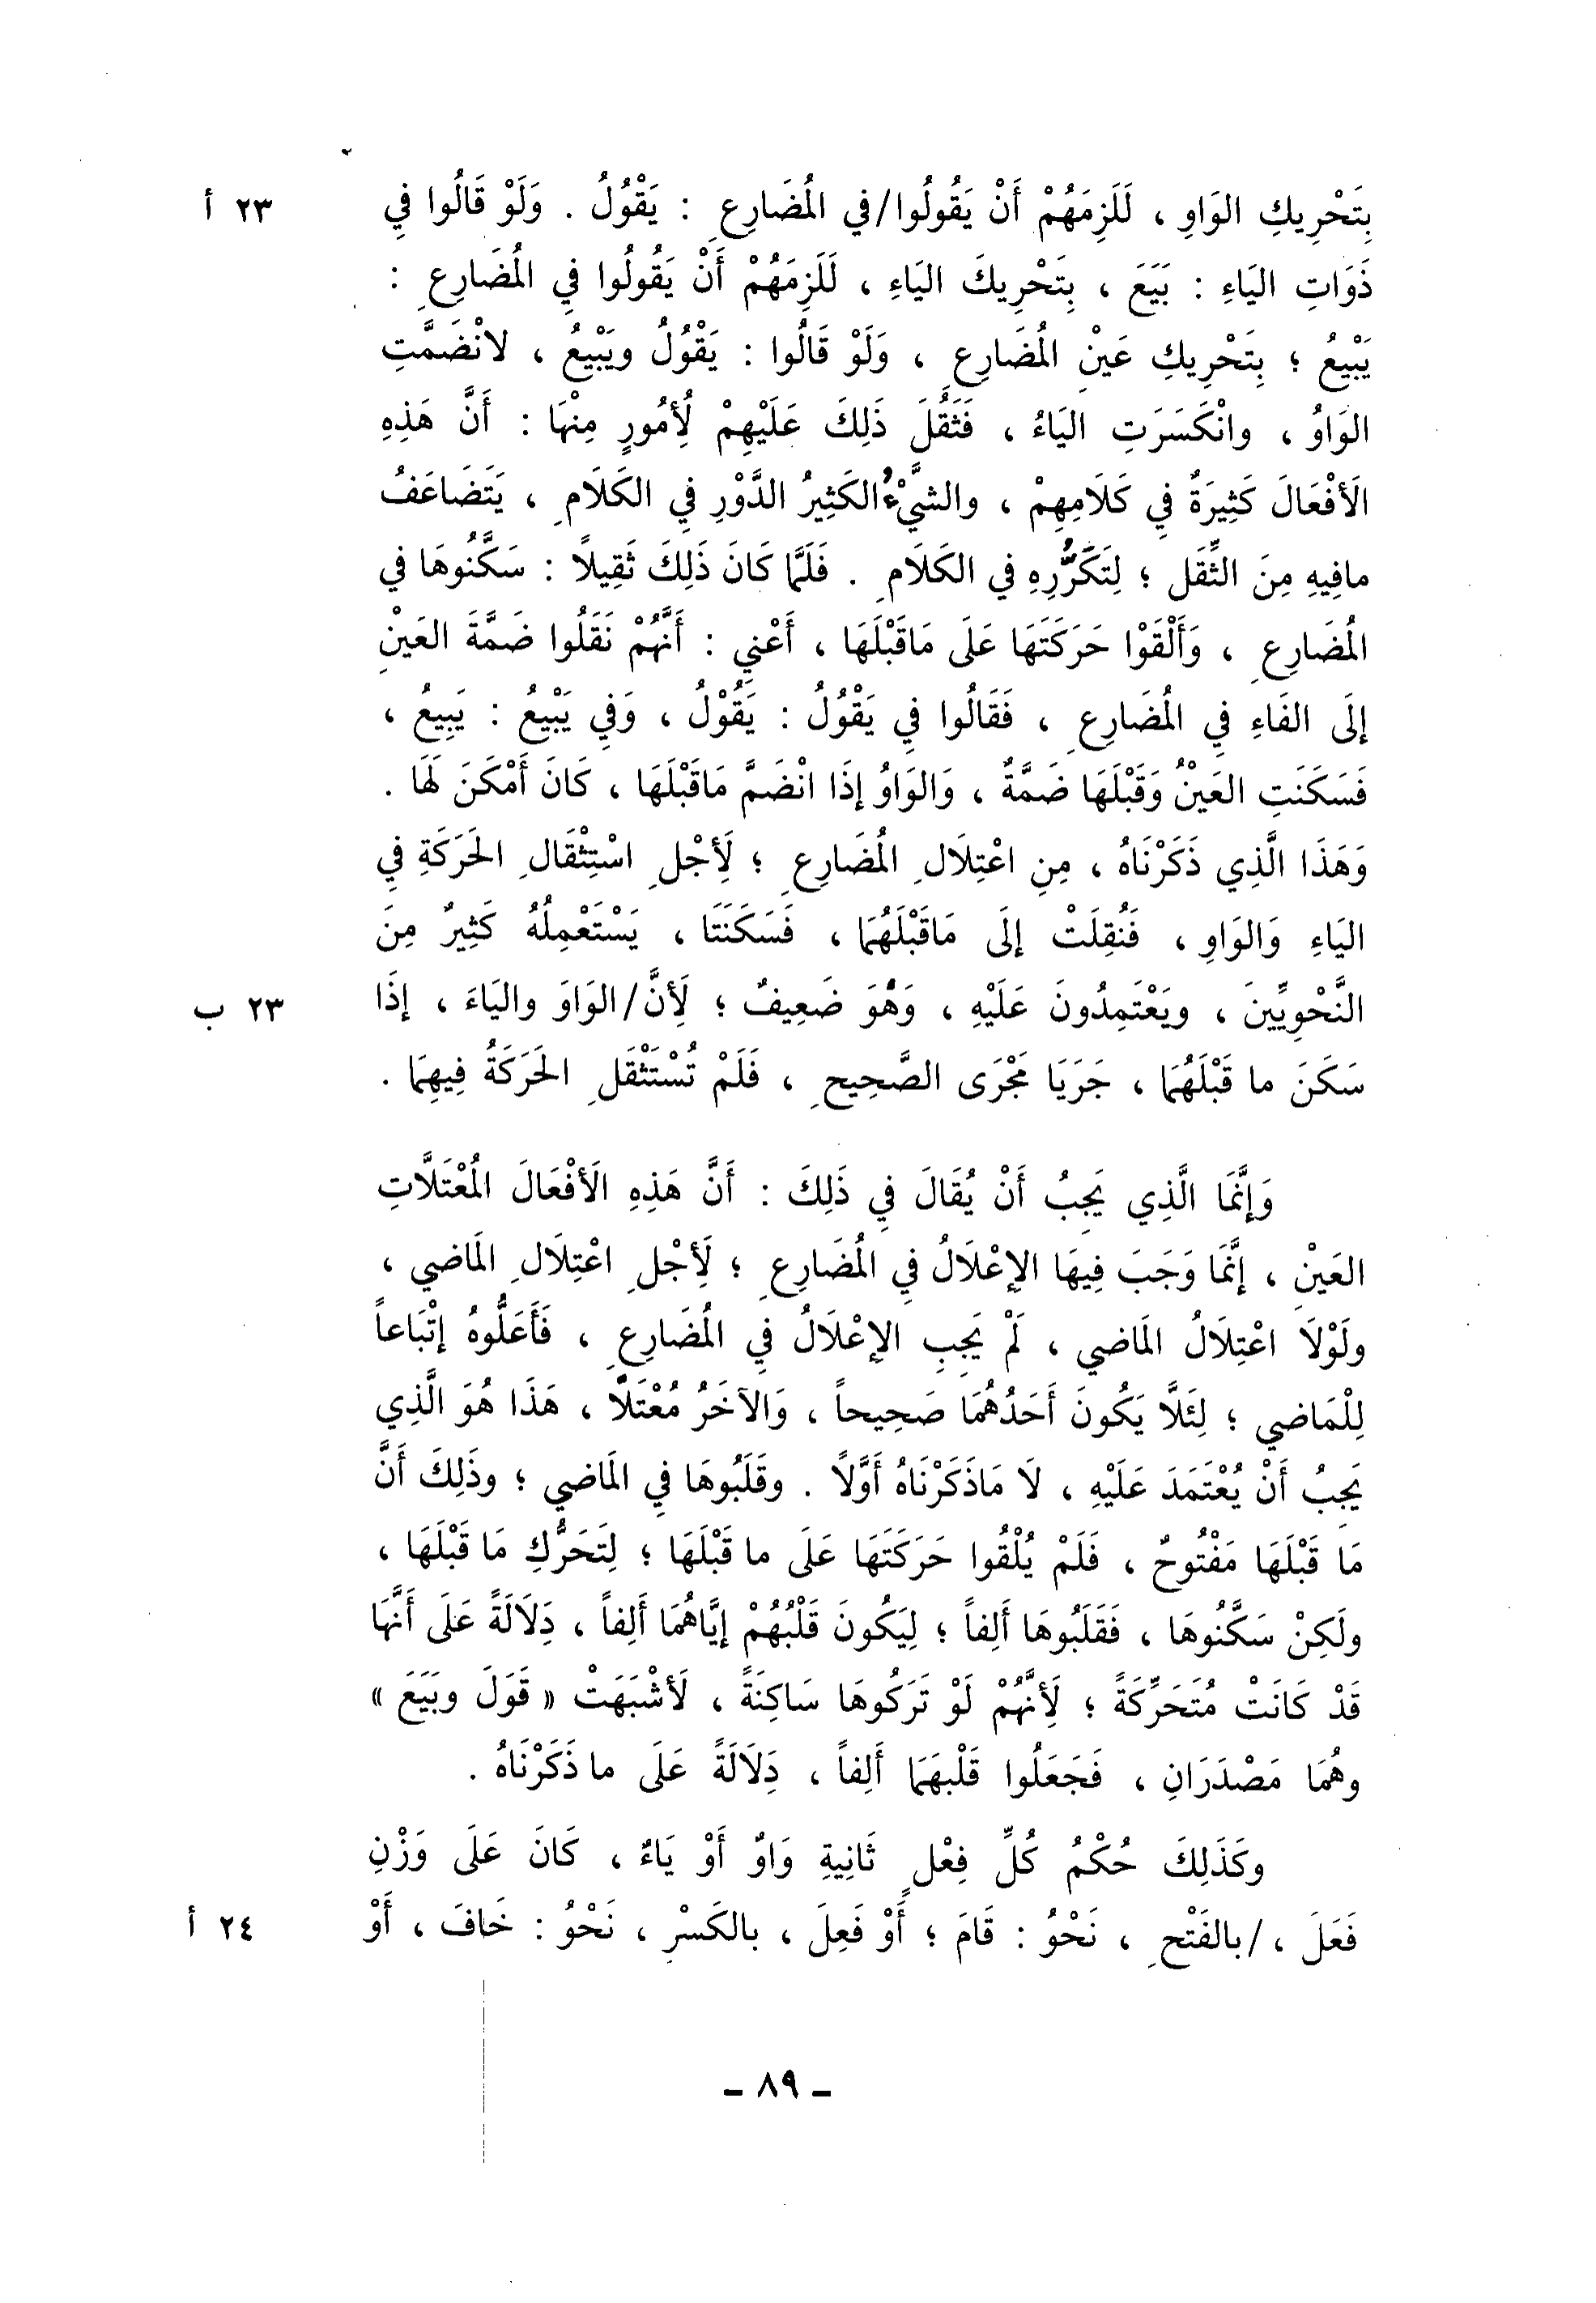 بِتَحْرِيكِ الوَاوِ ، لَلَزِمَهُمْ أَنْ يَقُولُوا/في المُضَارِعِ : يَقْوُلُ . وَلَوْ قَالُوا فِي ٢٣ أ
ذَوَاتِ اليَاءِ : بَيَعَ ، بِتَحْرِيكَ اليَاءِ ، لَلَزِمَهُمْ أَنْ يَقُولُوا فِي المُضَارِعِ :
يَبْيِعُ ؛ بِتَحْرِيكِ عَيْنِ المُضَارِعِ ، وَلَوْ قَالُوا : يَقْوُلُ ويَبْيِعُ ، لانْضَمَّتِ
الوَاوُ ، وانْكَسَرَتِ اليَاءُ ، فَثَقُلَ ذَلِكَ عَلَيْهِمْ لِأُمُورٍ مِنْهَا : أَنَّ هَذِهِ
الَأفْعَالَ كَثِيرَةٌ فِي كَلَامِهِمْ ، والشَّيْءُ الكَثِيرُ الدَّوْرِ فِي الكَلَامِ ، يَتَضَاعَفُ
مافِيهِ مِنَ الثِّقَلِ ؛ لِتَكَرُّرِهِ في الكَلَامِ . فَلَمَّا كَانَ ذَلِكَ ثَقِيلاً : سَكَّنُوهَا في
المُضَارِعِ ، وَأَلْقَوْا حَرَكَتَهَا عَلَى مَاقَبْلَهَا ، أَعْنِي : أَنَّهُمْ نَقَلُوا ضَمَّةَ العَيْنِ
إلَى الفَاءِ فِي المُضَارِعِ ، فَقَالُوا فِي يَقْوُلُ : يَقُوْلُ ، وَفِي يَبْيِعُ : يَبِيعُ ،
فَسَكَنَتِ العَيْنُ وَقَبْلَهَا ضَمَّةٌ ، وَالوَاوُ إذَا انْضَمَّ مَاقَبْلَهَا ، كَانَ أَمْكَنَ لَهَا .
وَهَذَا الَّذِي ذَكَرْنَاهُ ، مِنِ اعْتِلَالِ المُضَارِعِ ؛ لَأِجْلِ اسْتِثْقَالِ الحَرَكَةِ فِي
اليَاءِ وَالوَاوِ ، فَنُقِلَتْ إلَى مَاقَبْلَهُمَا ، فَسَكَنَتَا ، يَسْتَعْمِلُهُ كَثِيرٌ مِنَ
النَّحْوِيِّينَ ، ويَعْتَمِدُونَ عَلَيْهِ ، وَهُوَ ضَعِيفٌ ؛ لَأِنَّ/الوَاوَ واليَاءَ ، إذَا ٢٣ ب
سَكَنَ ما قَبْلَهُمَا ، جَرَيَا مَجْرَى الصَّحِيحِ ، فَلَمْ تُسْتَثْقَلِ الحَرَكَةُ فِيهِمَا .
وَإنَّمَا الَّذِي يَجِبُ أَنْ يُقَالَ فِي ذَلِكَ : أَنَّ هَذِهِ الَأفْعَالَ المُعْتَلَّاتِ
العَيْنِ ، إنَّمَا وَجَبَ فِيهَا الإعْلَالُ فِي المُضَارِعِ ؛ لَأِجْلِ اعْتِلَالِ المَاضي ،
ولَوْلَا اعْتِلَالُ المَاضي ، لَمْ يَجِبِ الإعْلَالُ فِي المُضَارِعِ ، فَأَعَلُّوهُ إتْبَاعاً
لِلْمَاضي ؛ لِئَلَّا يَكُونَ أَحَدُهُمَا صَحِيحاً ، وَالآخَرُ مُعْتَلًّا ، هَذَا هُوَ الَّذِي
يَجِبُ أَنْ يُعْتَمَدَ عَلَيْهِ ، لَا مَاذَكَرْنَاهُ أَوَّلاً . وقَلَبُوهَا في المَاضي ؛ وذَلِكَ أَنَّ
مَا قَبْلَهَا مَفْتُوحٌ ، فَلَمْ يُلْقُوا حَرَكَتَهَا عَلَى ما قَبْلَهَا ؛ لِتَحَرُّكِ مَا قَبْلَهَا ،
ولَكِنْ سَكَّنُوهَا ، فَقَلَبُوهَا أَلِفاً ؛ لِيَكُونَ قَلْبُهُمْ إيَّاهُمَا أَلِفاً ، دِلَالَةً عَلَى أَنَّهَا
قَدْ كَانَتْ مُتَحَرِّكَةً ؛ لَأِنَّهُمْ لَوْ تَرَكُوهَا سَاكِنَةً ، لَأشْبَهَتْ « قَوَلَ وبَيَعَ »
وهُمَا مَصْدَرَانِ ، فَجَعَلُوا قَلْبَهَمَا أَلِفاً ، دِلَالَةً عَلَى ما ذَكَرْنَاهُ .
وكَذَلِكَ حُكْمُ كُلِّ فِعْلٍ ثَانِيةِ وَاوٌ أَوْ يَاءٌ ، كَانَ عَلَى وَزْنِ
فَعَلَ ، /بالفَتْحِ ، نَحْوُ : قَامَ ؛ أَوْ فَعِلَ ، بالكَسْرِ ، نَحْوُ : خَافَ ، أَوْ ٢٤ أ
ـ ٨٩ ـ